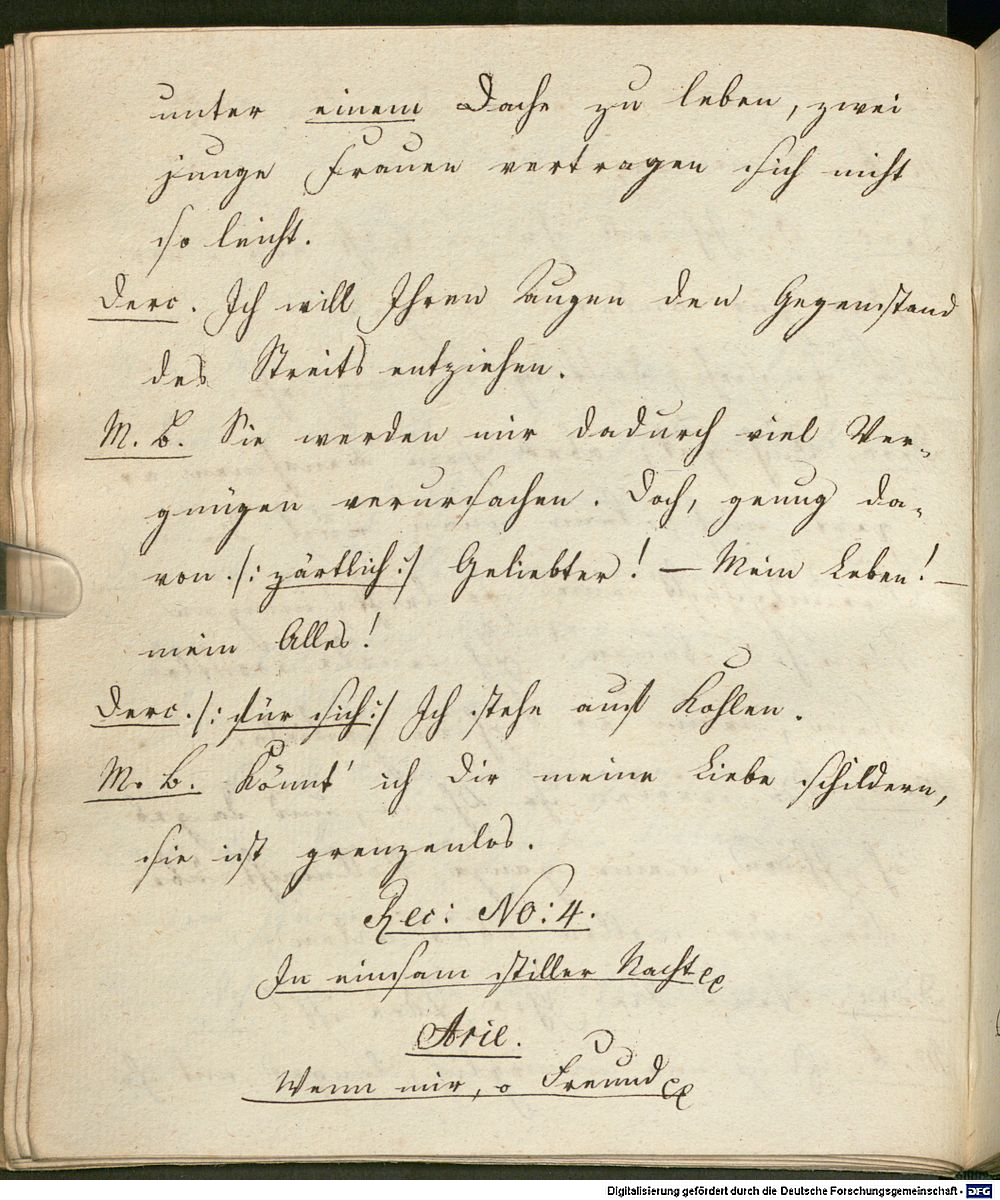 unter einem Dache zu leben, zwei
junge Frauen vertragen sich nicht
so leicht.
Derc. Ich will Ihren Augen den Gegenstand
des Streits entziehen.
M. B. Sie werden mir dadurch viel Ver-
gnügen verursachen. Doch, genug da-
von. /: zärtlich :/ Geliebter! — Mein Leben! —
mein Alles!
Derc. /: für sich :/ Ich stehe auf Kohlen.
M. B. Könnt' ich dir meine Liebe schildern,
sie ist grenzenlos.
Rec: No: 4.
In einsam stiller Nacht
Arie.
Wenn mir, o Freund
Digitalisierung gefördert durch die Deutsche Forschungsgemeinschaft - DFG